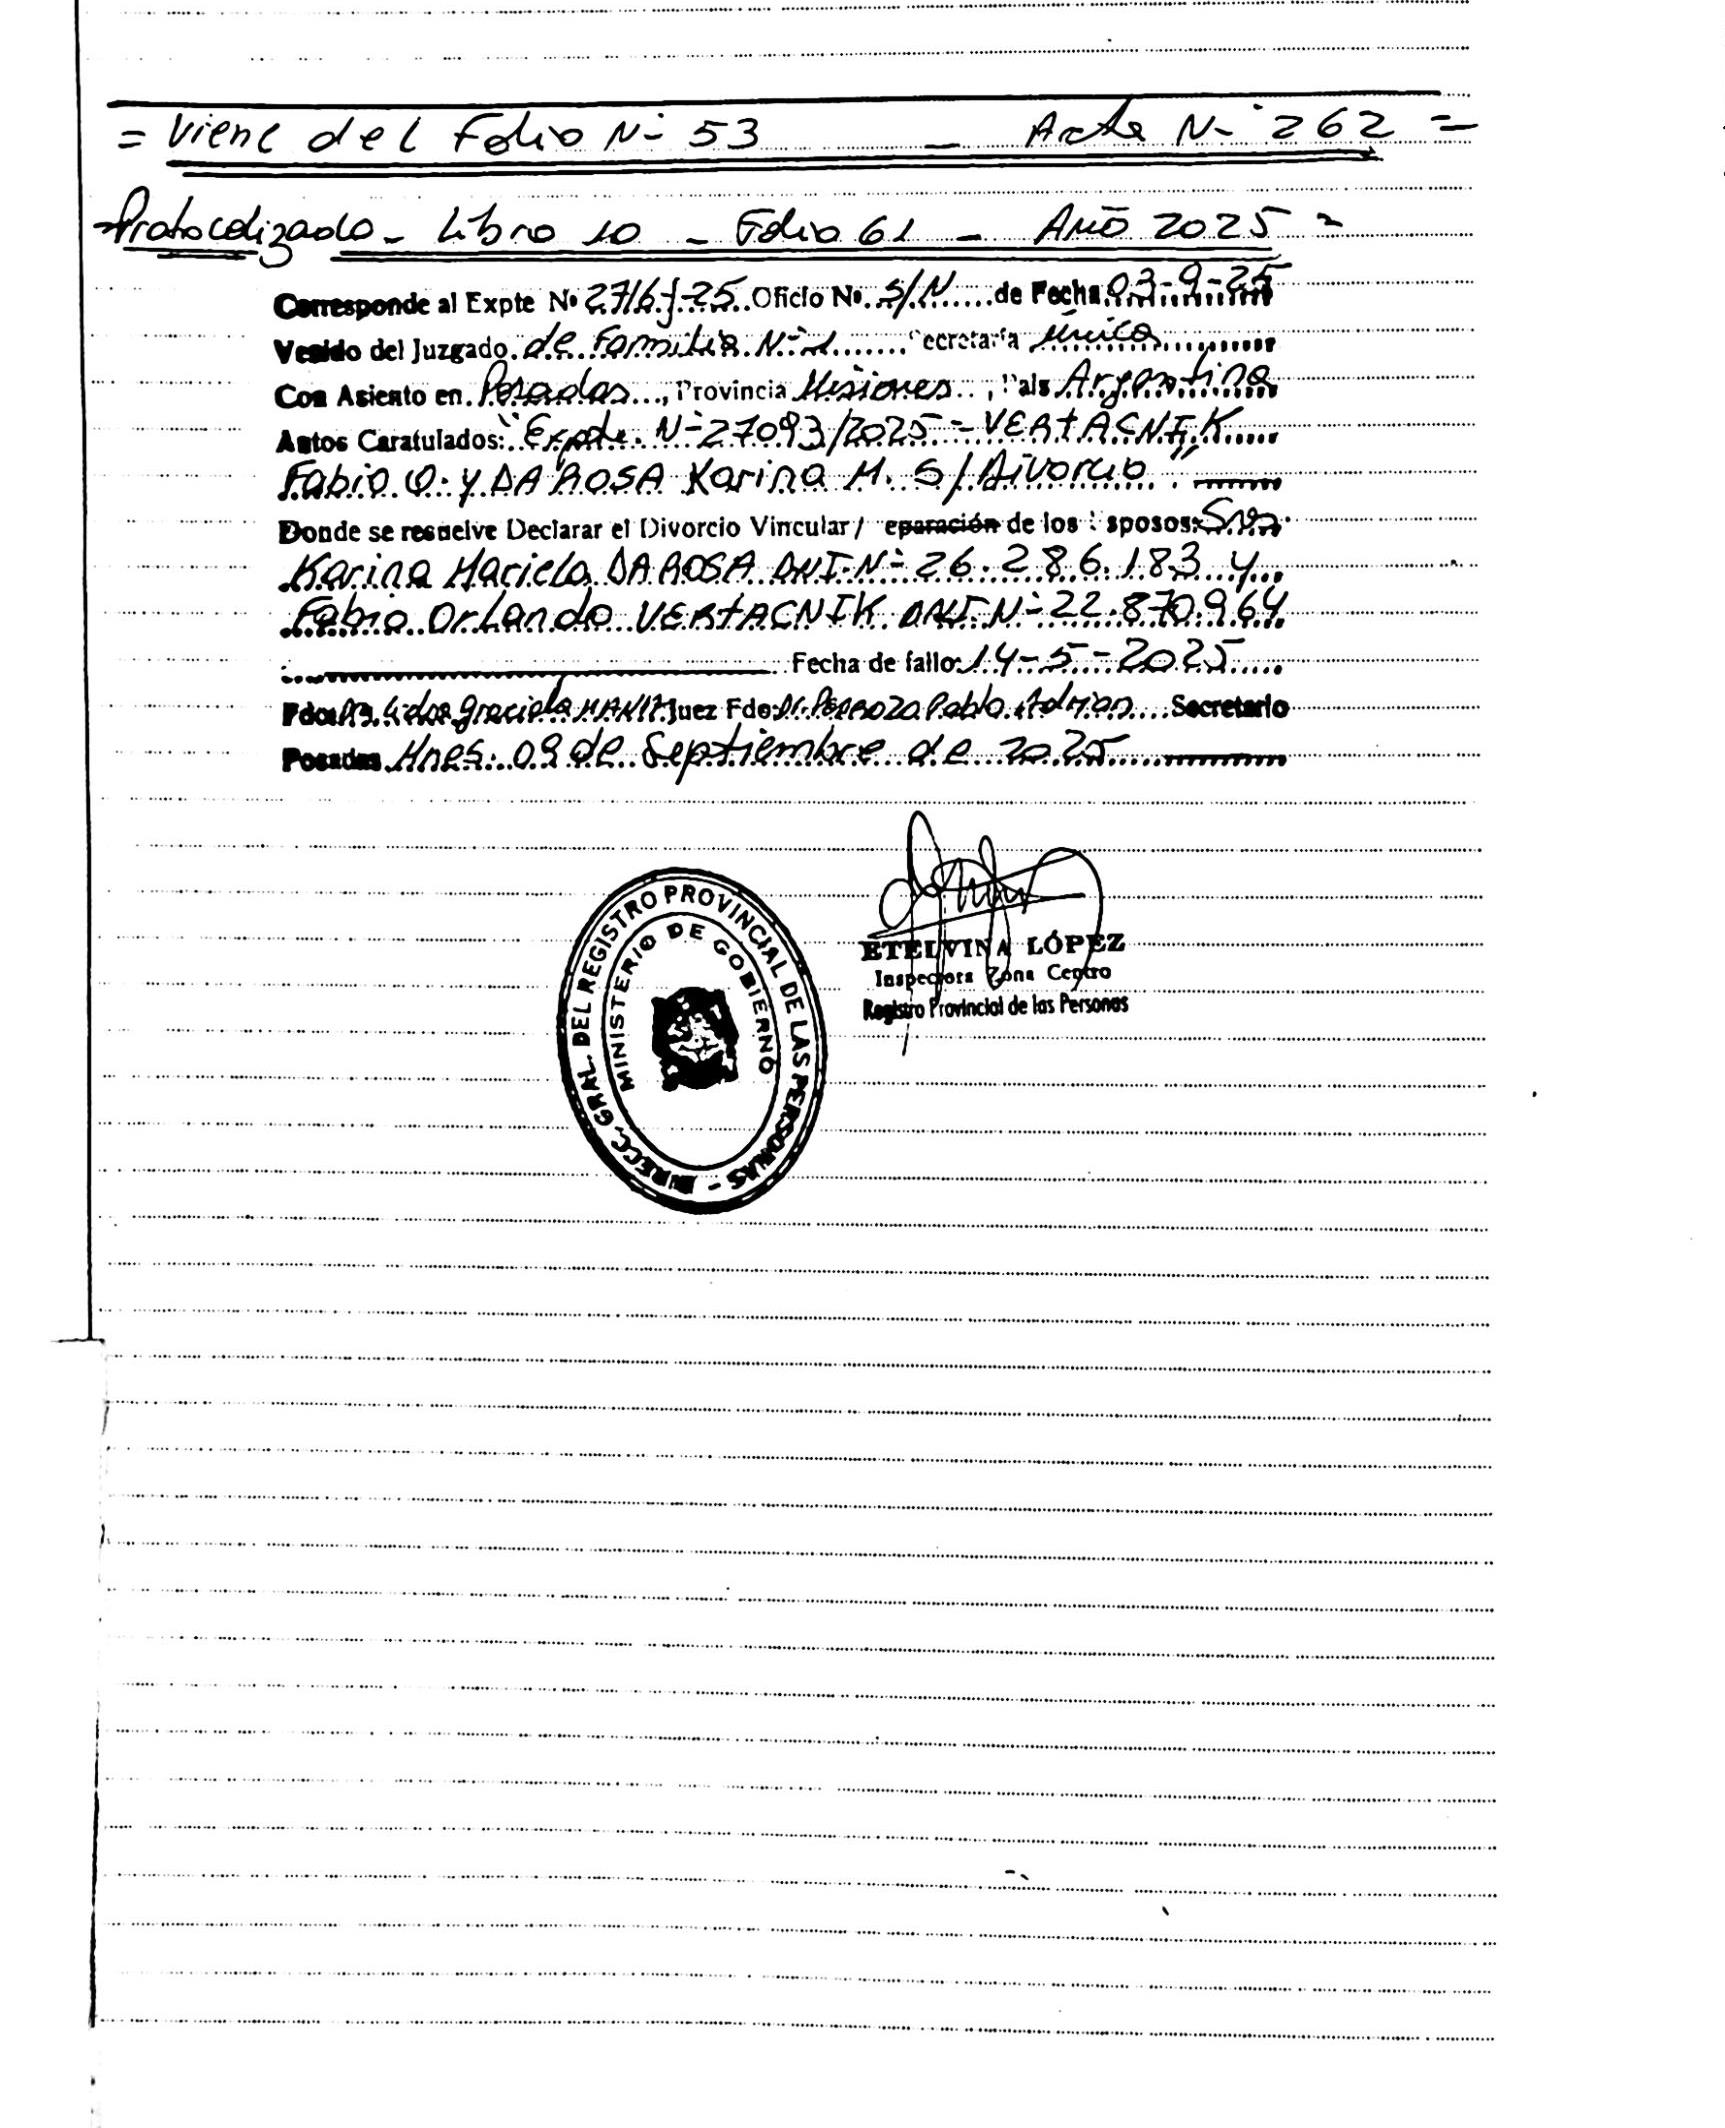 = Viene del Folio N- 53 — Acta N- 262 =
Protocolizado - Libro 10 - Folio 61 - Año 2025 =
Corresponde al Expte Nº 2716-J-25 Oficio Nº S/N de Fecha 03-9-25
Venido del Juzgado de Familia N-1 Secretaría única
Con Asiento en Posadas, Provincia Misiones, País Argentina
Autos Caratulados: "Expte. N-27093/2025 = VERTACNIK
Fabio O. y DA ROSA Karina M. S/Divorcio"
Donde se resuelve Declarar el Divorcio Vincular / eparación de los sposos: Sres.
Karina Mariela DA ROSA DNI-N- 26.286.183 y
Fabio Orlando VERTACNIK DNI-N- 22.870.964
Fecha de fallo: 14-5-2025
Fdo: Graciela Juez Fdo: Dr. Pablo Adrian Secretario
Posadas, Mnes. 09 de Septiembre de 2025
DIRECC. GRAL. DEL REGISTRO PROVINCIAL DE LAS PERSONAS -
MINISTERIO DE GOBIERNO
ETELVINA LÓPEZ
Inspectora Zona Centro
Registro Provincial de las Personas